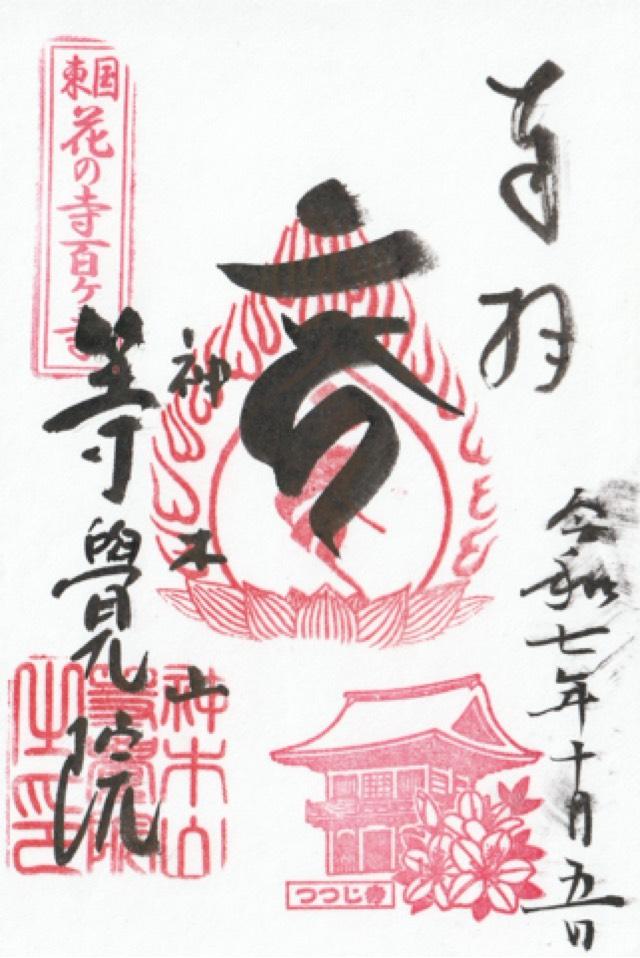 奉拝
令和七年十月五日
神木山
等覺院
東国
花の寺百ヶ寺
神木山
等覺院
之印
つつじ寺